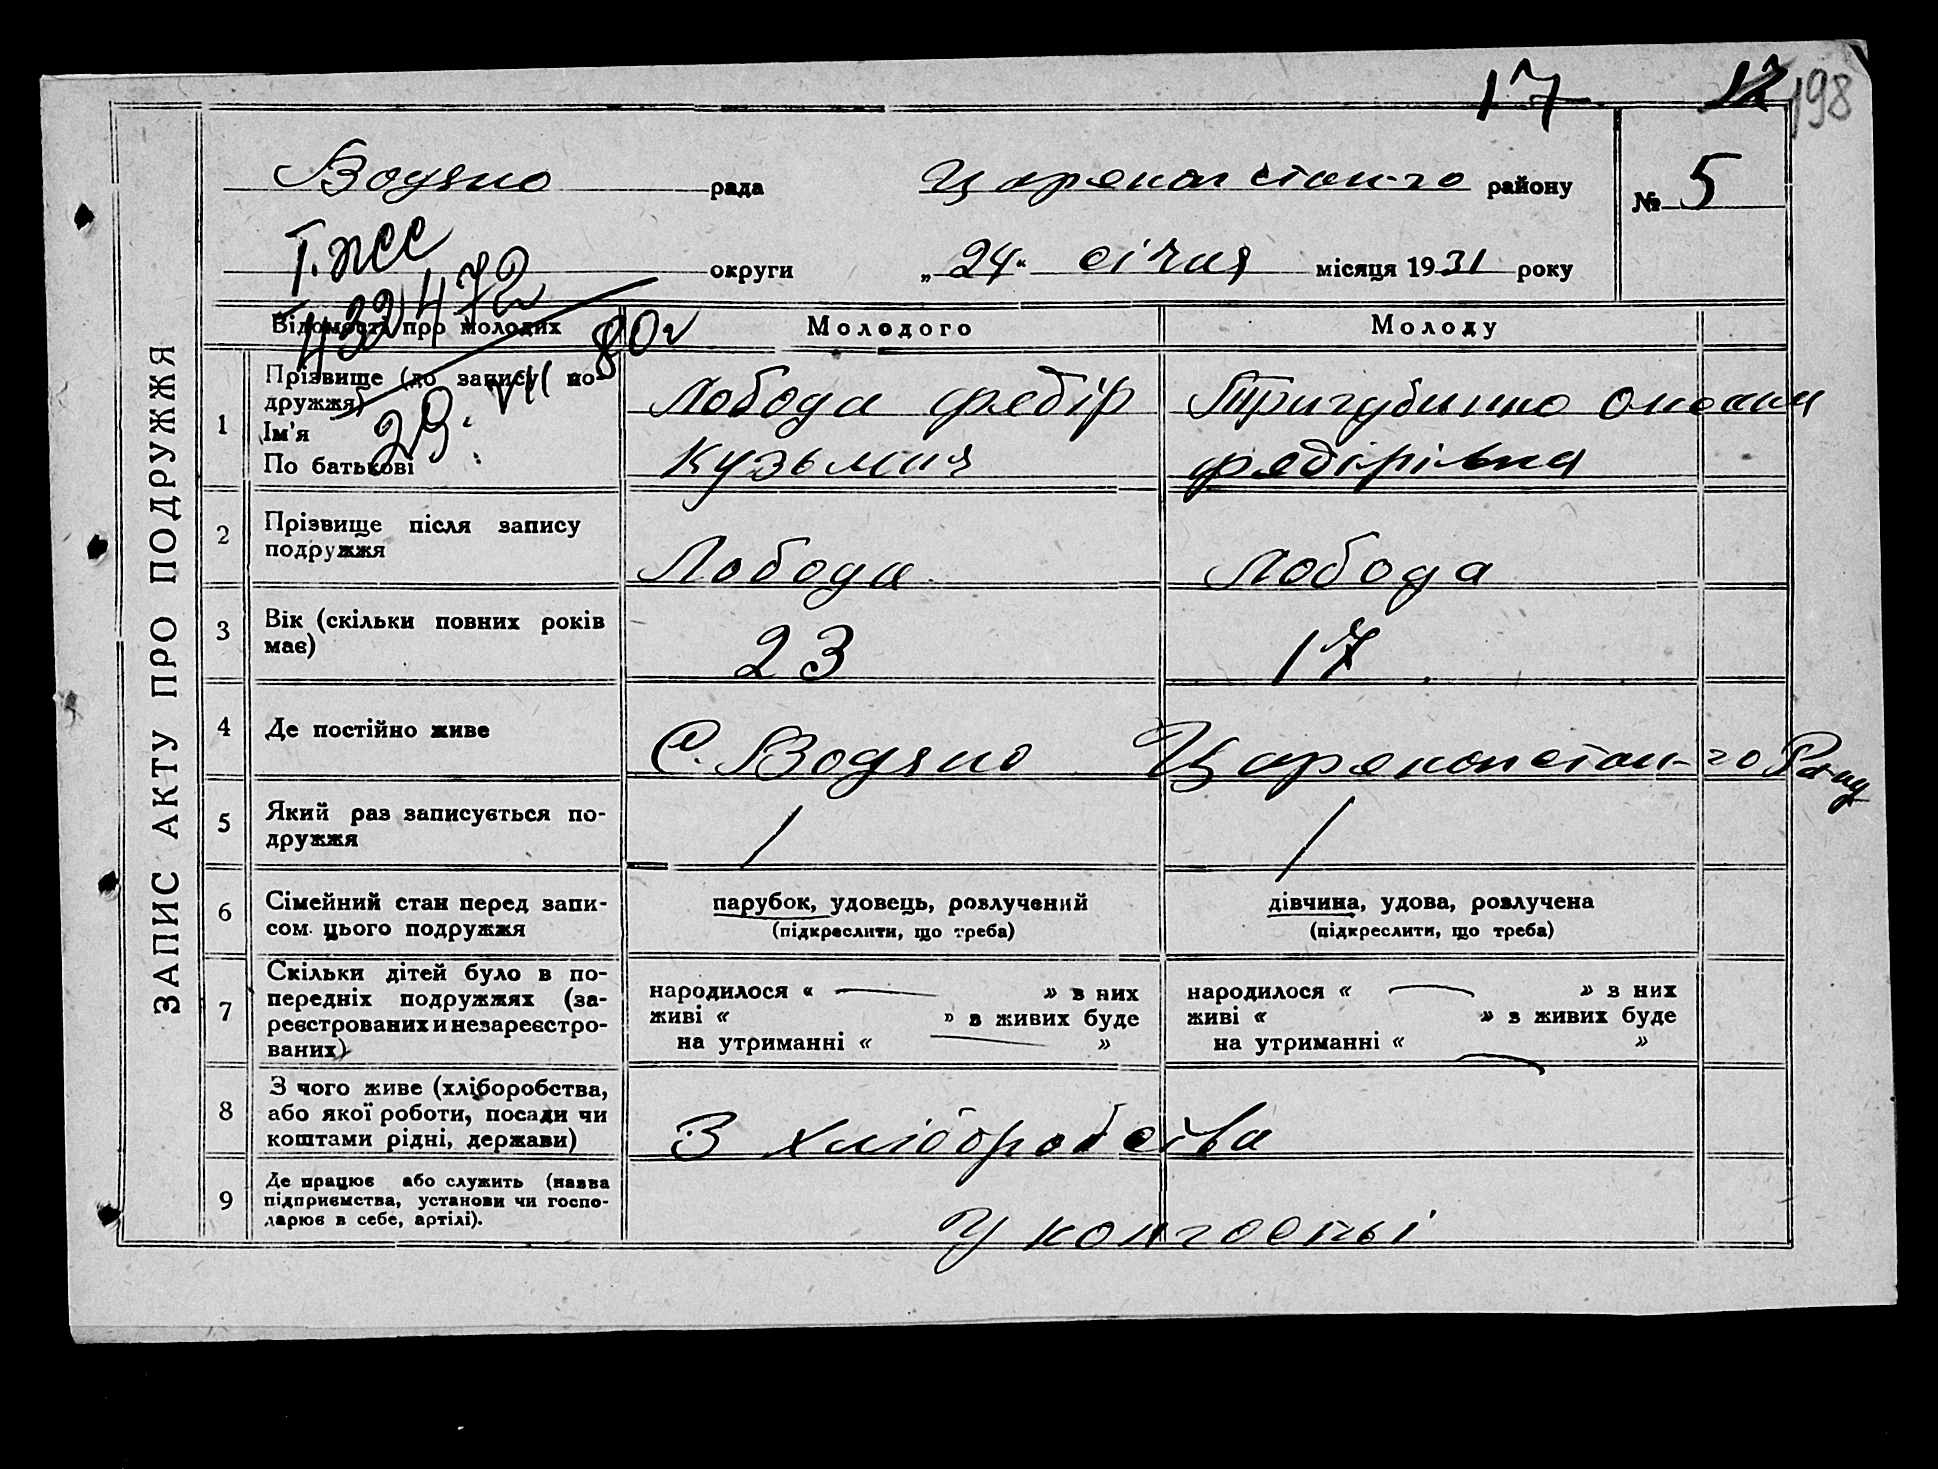 17 12 198
Водяно рада Царекон стан-го району № 5
округи „24“ січня місяця 1931 року
432472
80 г
29. VII
ЗАПИС АКТУ ПРО ПОДРУЖЖЯ
Відомості про молодих Молодого Молоду
1 Прізвище (до запису по-
дружжя)
Ім'я
По батькові
Лобода Федір
Кузьмич
Тригубенко Оксана
Федірівна
2 Прізвище після запису
подружжя
Лобода Лобода
3 Вік (скільки повних років
має)
23 17
4 Де постійно живе С. ВодяноЦареконстан-го Р-ну
5 Який раз записується по-
дружжя
1 1
6 Сімейний стан перед запи-
сом цього подружжя
парубок, удовець, розлучений
(підкреслити, що треба)
дівчина, удова, розлучена
(підкреслити, що треба)
7 Скільки дітей було в по-
передніх подружжях (за-
реєстрованих и незареєстро-
ваних)
народилося « — » з них
живі « » з живих буде
на утриманні « — »
народилося « — » з них
живі « » з живих буде
на утриманні « — »
8 З чого живе (хліборобства,
або якої роботи, посади чи
коштами рідні, держави)
З хліборобства
9 Де працює або служить (назва
підприємства, установи чи госпо-
дарює в себе, артілі).
У колгоспі